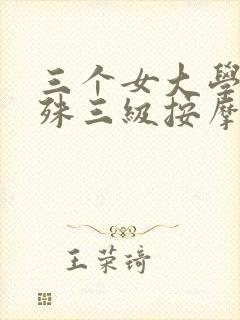 三个女大學
殊三級按摩
王荣琦